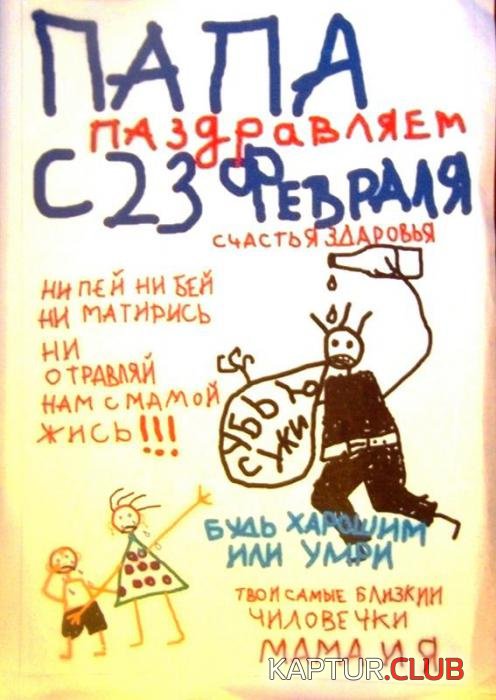 ПАПА
ПАЗДРАВЛЯЕМ
С 23 ФЕВРАЛЯ
СЧАСТЬЯ ЗДАРОВЬЯ
НИ ПЕЙ НИ БЕЙ
НИ МАТИРИСЬ
НИ
ОТРАВЛЯЙ
НАМ С МАМОЙ
ЖИСЬ!!!
УБЬЮ
СУКИ
БУДЬ ХАРОШИМ
ИЛИ УМРИ
ТВОИ САМЫЕ БЛИЗКИИ
ЧИЛОВЕЧКИ
МАМА И Я
KAPTUR.CLUB